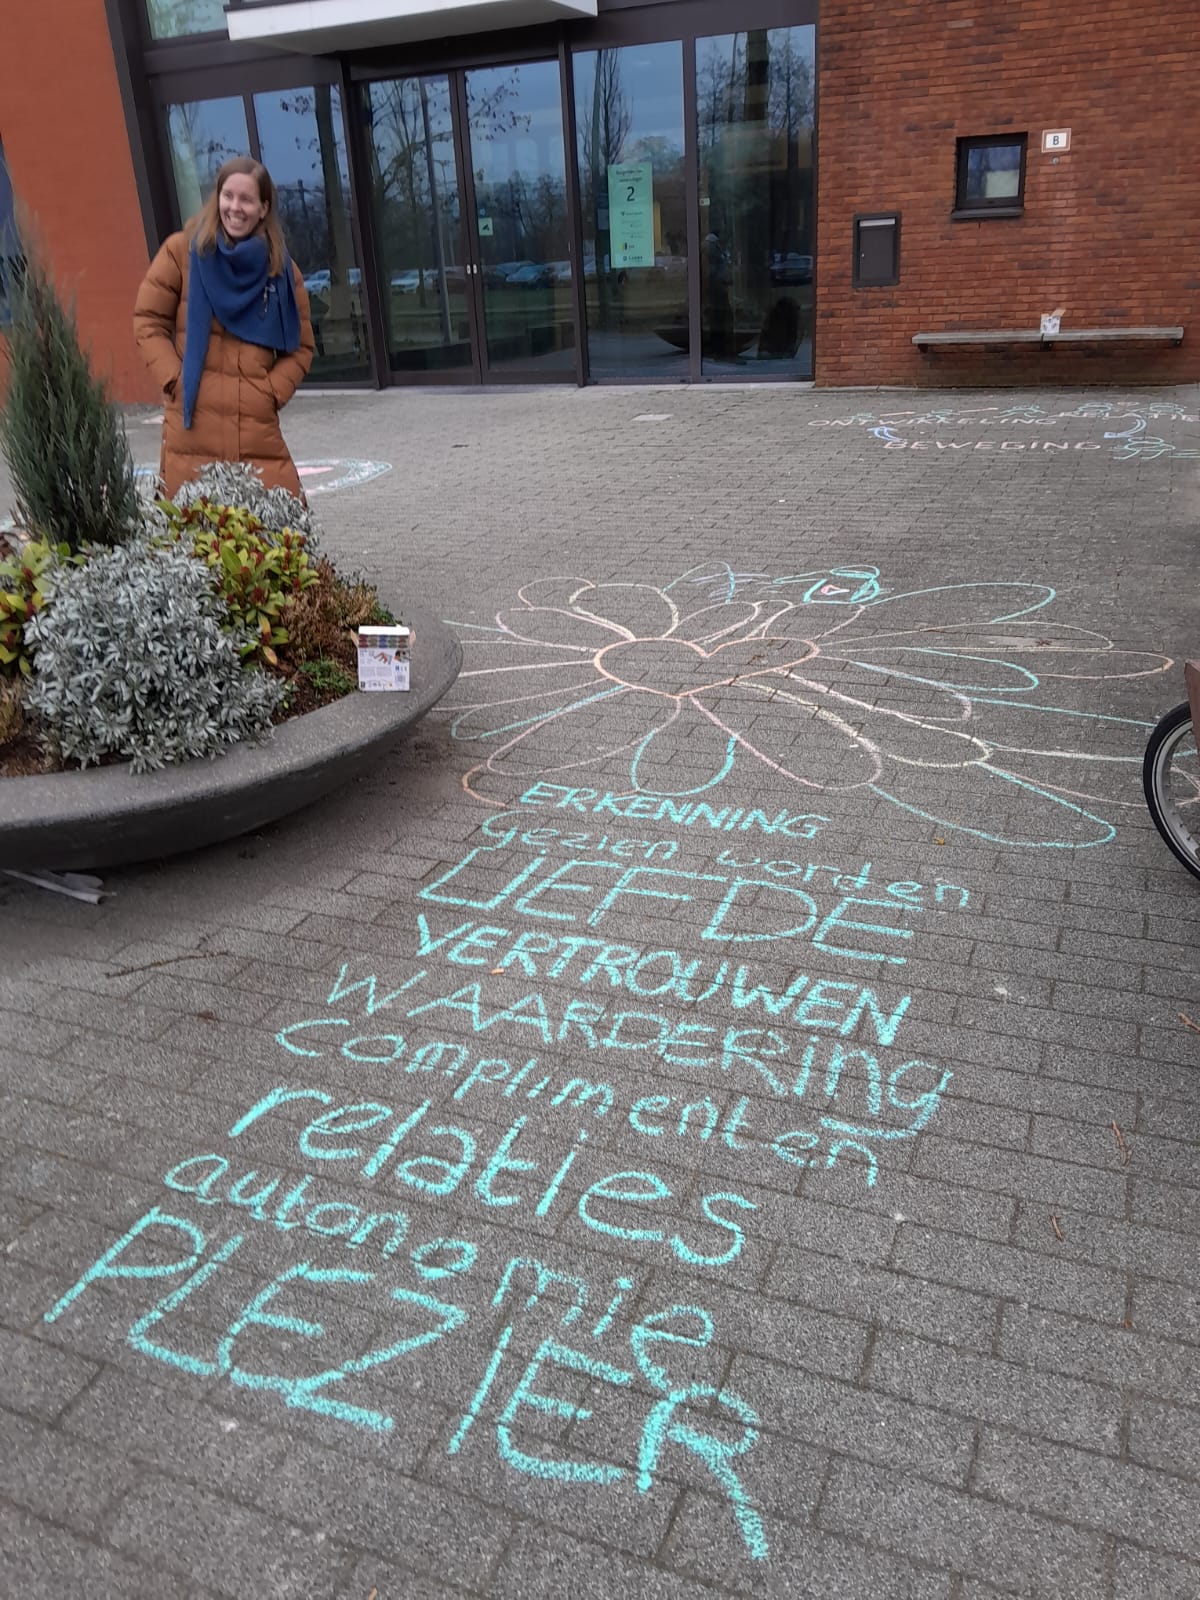 2
B
ONTWIKKELING RELATIE
BEWEGING
ERKENNING
Gezien worden
LIEFDE
VERTROUWEN
WAARDERing
Complimenten
relaties
autonomie
PLEZIER